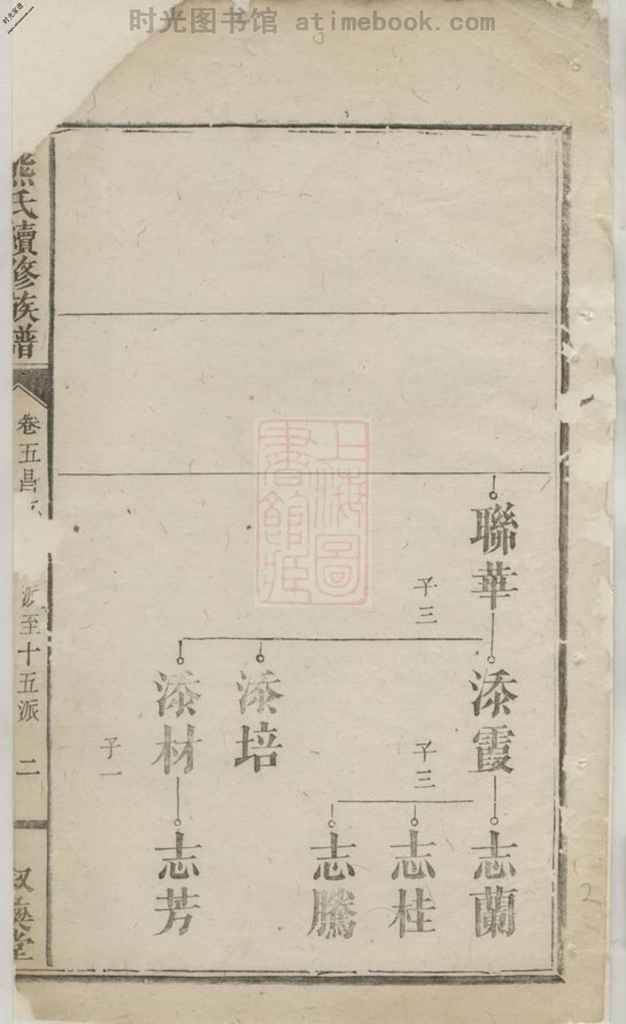 时光图书馆 atimebook.com
聯華
子三
添霞
添培
添材
子三
子一
志蘭
志桂
志騰
志芳
熊氏續修族譜
卷五昌
派至十五派
二
堂
上海圖書館藏
2